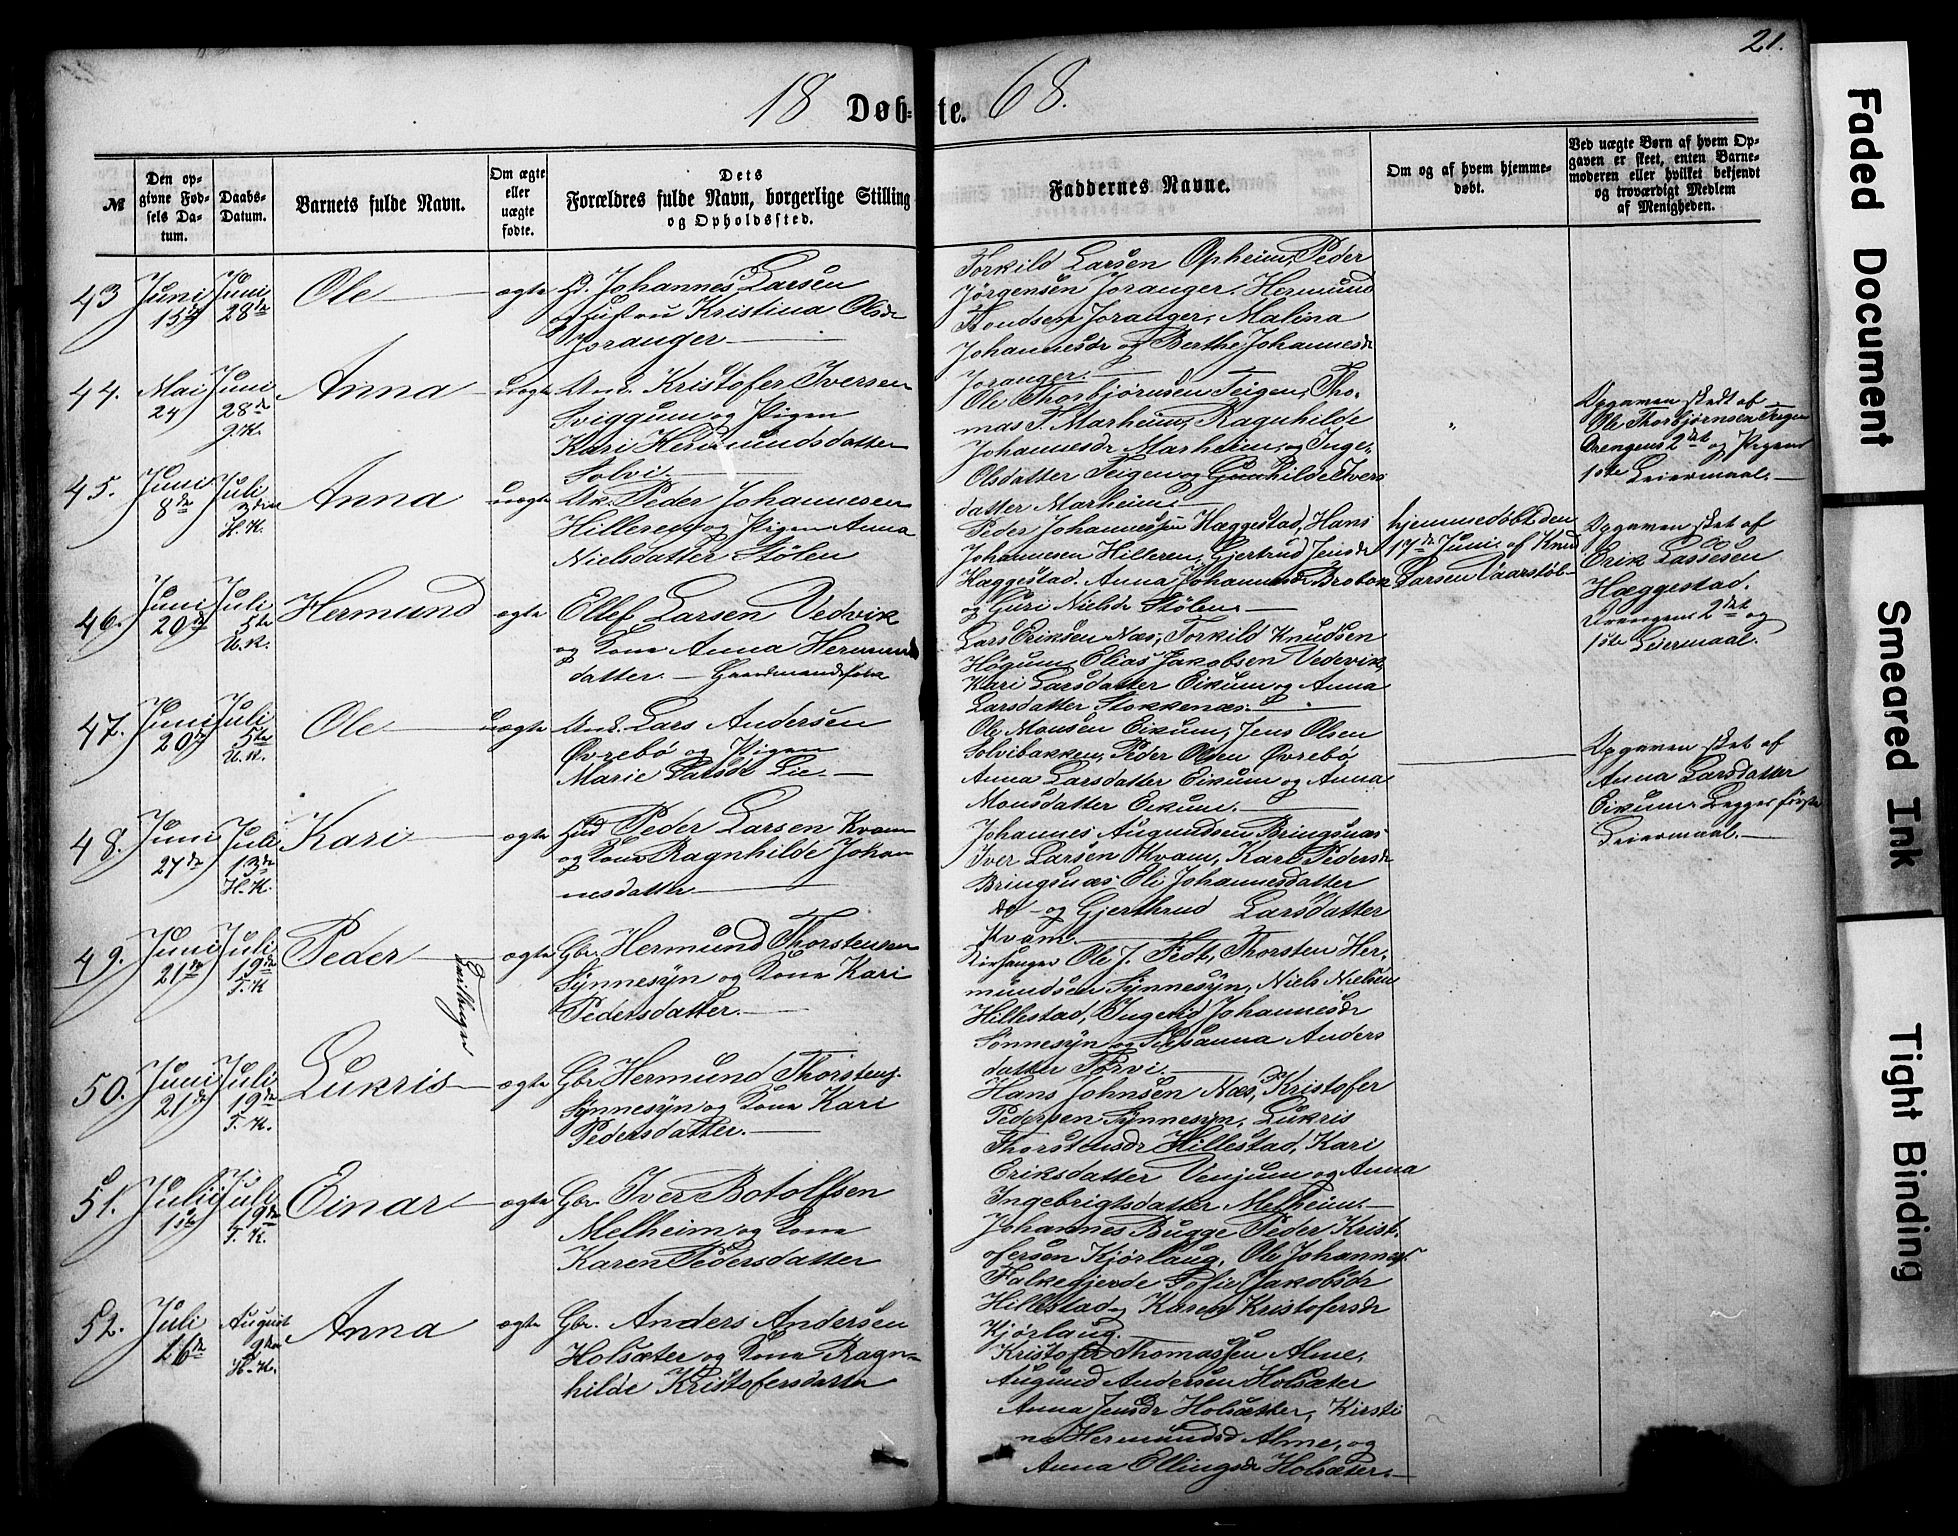 21.
18 Døb-te. 68.
№
Den opgivne Fødsels Datum.
Daabs-Datum.
Barnets fulde Navn.
Om ægte eller uægte fødte.
Dets
Forældres fulde Navn, borgerlige Stilling
og Opholdssted.
Faddernes Navne.
Om og af hvem hjemmedøbt.
Ved uægte Børn af hvem Opgaven er skeet, enten Barnemoderen eller hvilket bekjendt og troværdigt Medlem af Menigheden.
43 Juni 15de Juni 28de Ole ægte
Johannes Larsen
og Hustru Kristina Olsdr
Joranger
Torkild Larsen Opheim, Peder
Jörgensen Joranger, Hermund
Joranger, Malina
Johannesdr og Berthe Johannesdr
Joranger.
44. Mai 24 Juni 28de J.K. Anna uægte
Ung. Kristofer Iversen
Sviggum og Pigen
Kari Hermundsdatter
Solvi
Ole Thorbjörnsen Teigen, Tho-
mas T. Marheim, Ragnhilde
Johannesdr Marheim, og Inge-
Olsdatter Teigen og Gunhilde Ivers
datter Marheim
Opgaven skedt af
Ole Thorbjørnsen Teigen
Drengens 2det og Pigens
1ste Leiermaal.
45. Juni 8de Juli H.K. Anna uægte
Peder Johannesen
Hilleren og Pigen Anna
Nielsdatter Stölen
Peder Johannesen Hæggestad, Hans
Johannesen Hilleren, Gjertrud Jensdr
Hæggestad. Anna Johannesdr
og Guri Nielsdr Stölen
hjemmedöbt den
17de Juni af Knud
Larsen
Opgaven sket af
Erik Lassesen
Hæggestad.
Drengens 2det og
1ste Leiermaal.
46. Juni 20de Juli 5te U.K. Hermund ægte
Ellef Larsen Vedvik
og Kone Anna Hermunds
datter. — Gaardmandsfolk
Lars Eriksen Næs, Torkild Knudsen
Högum, Elias Jakobsen Vedvik,
Kari Larsdatter Eikum og Anna
Larsdatter Stokkenæs.
47. Juni 20de Juli 5te U.K. Ole uægte
Ung. Lars Andersen
Øvrebö og Pigen
Marie Larsdr Lie
Ole Monsen Eikum, Jens Olsen
Solvibakken, Peder Olsen Øvrebö
Anna Larsdatter Eikum og Anna
Monsdatter Eikum.
Opgaven sket af
Anna Larsdatter
Eikum. Begges første
Leiermaal.
48. Juni 27de Juli 13de H.K. Kari ægte
Peder Larsen Kvam
og Kone Ragnhilde Johan
nesdatter
Johannes Augundsen Bringsnæs
Iver Larsen Kvam, Kari Pedersdr
Bringsnæs Eli Johannesdatter
do — og Gjerthrud Larsdatter
Kvam.
49. Juni 21de Juli 19de F.K Peder ægte
Tvillinger
Gbr Hermund Thorstensen
Synnesyn og Kone Kari
Pedersdatter.
Kirsanger Ole J. Fedt, Thorsten Her-
mundsen Synnesyn, Niels Nielsen
Hillestad, Ingerid Johannesdr
Sönnesyn og Susanna Anders
datter Torvi.
50. Juni 21de Juli 19de F.K. Lukris ægte
Gbr Hermund Thorstens.
Synnesyn og Kone Kari
Pedersdatter.
Hans Johnsen Næs, Kristofer
Pedersen Synnesyn, Lukris
Thorstensdr Hillestad, Kari
Eriksdatter Venjum og Anna
Ingebrigtsdatter Melheim.
51. Juli 1ste Juli 19de F.K. Einar ægte
Gbr. Iver Botolfsen
Melheim og Kone
Karen Pedersdatter
Johannes Bugge Peder Krist-
ofersen Kjörlaug, Ole Johannes
Falkegjerde Sofie Jakobsdr
Hillestad og Karen Kristofersdr
Kjörlaug.
52. Juli 26de August 9de H.K. Anna ægte
Gbr. Anders Andersen
Holsæter og Kone Ragn-
hilde Kristofersdatter
Kristofer Thomassen Alme,
Augund Andersen Holsæter
Anna Jensdr Holsætter, Kirsti
na Hermundsd Alme, og
Anna Ellingsdr Holsæter.
Faded Document
Smeared Ink
Tight Binding